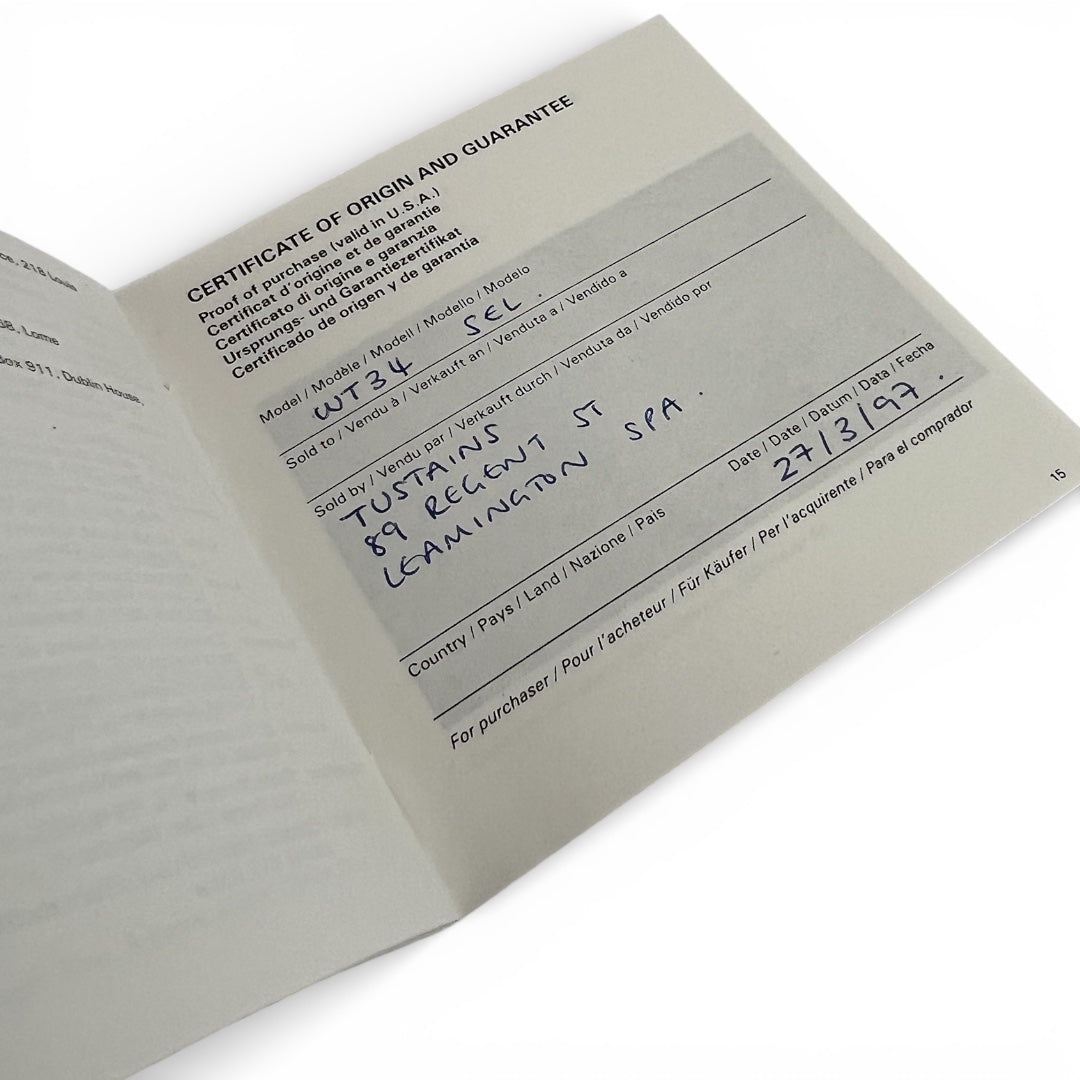 ce, 218 
68, Lome
Box 911, Dublin House,
CERTIFICATE OF ORIGIN AND GUARANTEE
Proof of purchase (valid in U.S.A.)
Certificat d'origine et de garantie
Certificato di origine e garanzia
Ursprungs- und Garantiezertifikat
Certificado de origen y de garantia
Model / Modèle / Modell / Modello / Modelo
WT34 SEL.
Sold to / Vendu à / Verkauft an / Venduta a / Vendido a
Sold by / Vendu par / Verkauft durch / Venduta da / Vendido por
TUSTAINS
89 REGENT ST
LEAMINGTON SPA.
Date / Date / Datum / Data / Fecha
27/3/97.
Country / Pays / Land / Nazione / Pais
For purchaser / Pour l'acheteur / Für Käufer / Per l'acquirente / Para el comprador
15